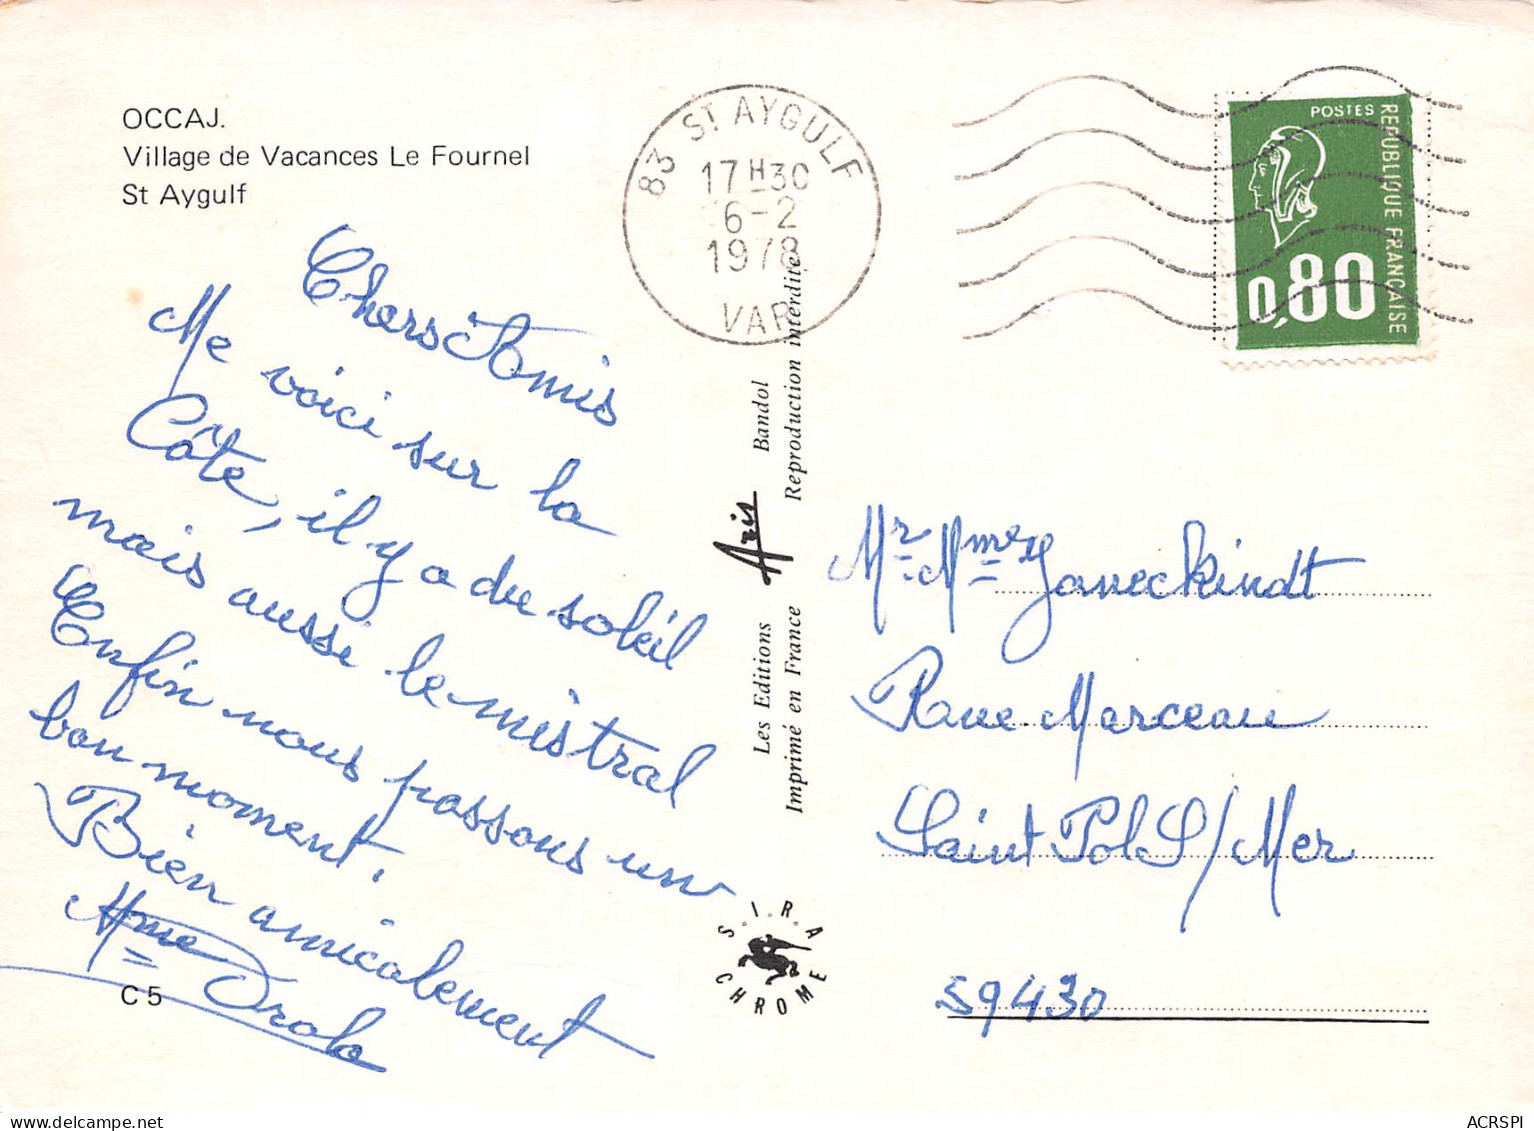 OCCAJ.
Village de Vacances Le Fournel
St Aygulf
83 ST AYGULF
17 H 30
6-2
1978
VAR
POSTES
REPUBLIQUE FRANÇAISE
0,80
Chers Amis
Me voici sur la
Côte, il y a du soleil
mais aussi le mistral
Enfin nous passons un
bon moment.
Bien amicalement
Mme Drola
C 5
Les Editions Aris Bandol
Imprimé en France Reproduction interdite
S.I.R.A.
CHROME
Mr. Mme Janeckindt
Rue Marceau
Saint Pol S/Mer
59430
ACRSPI